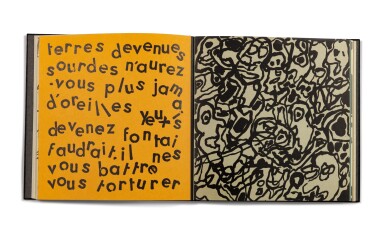 terres devenues
sourdes n'aurez
-vous plus jama
d'oreilles yeux is
devenez fontai
faudrait.il nes
vous battre
vous torturer